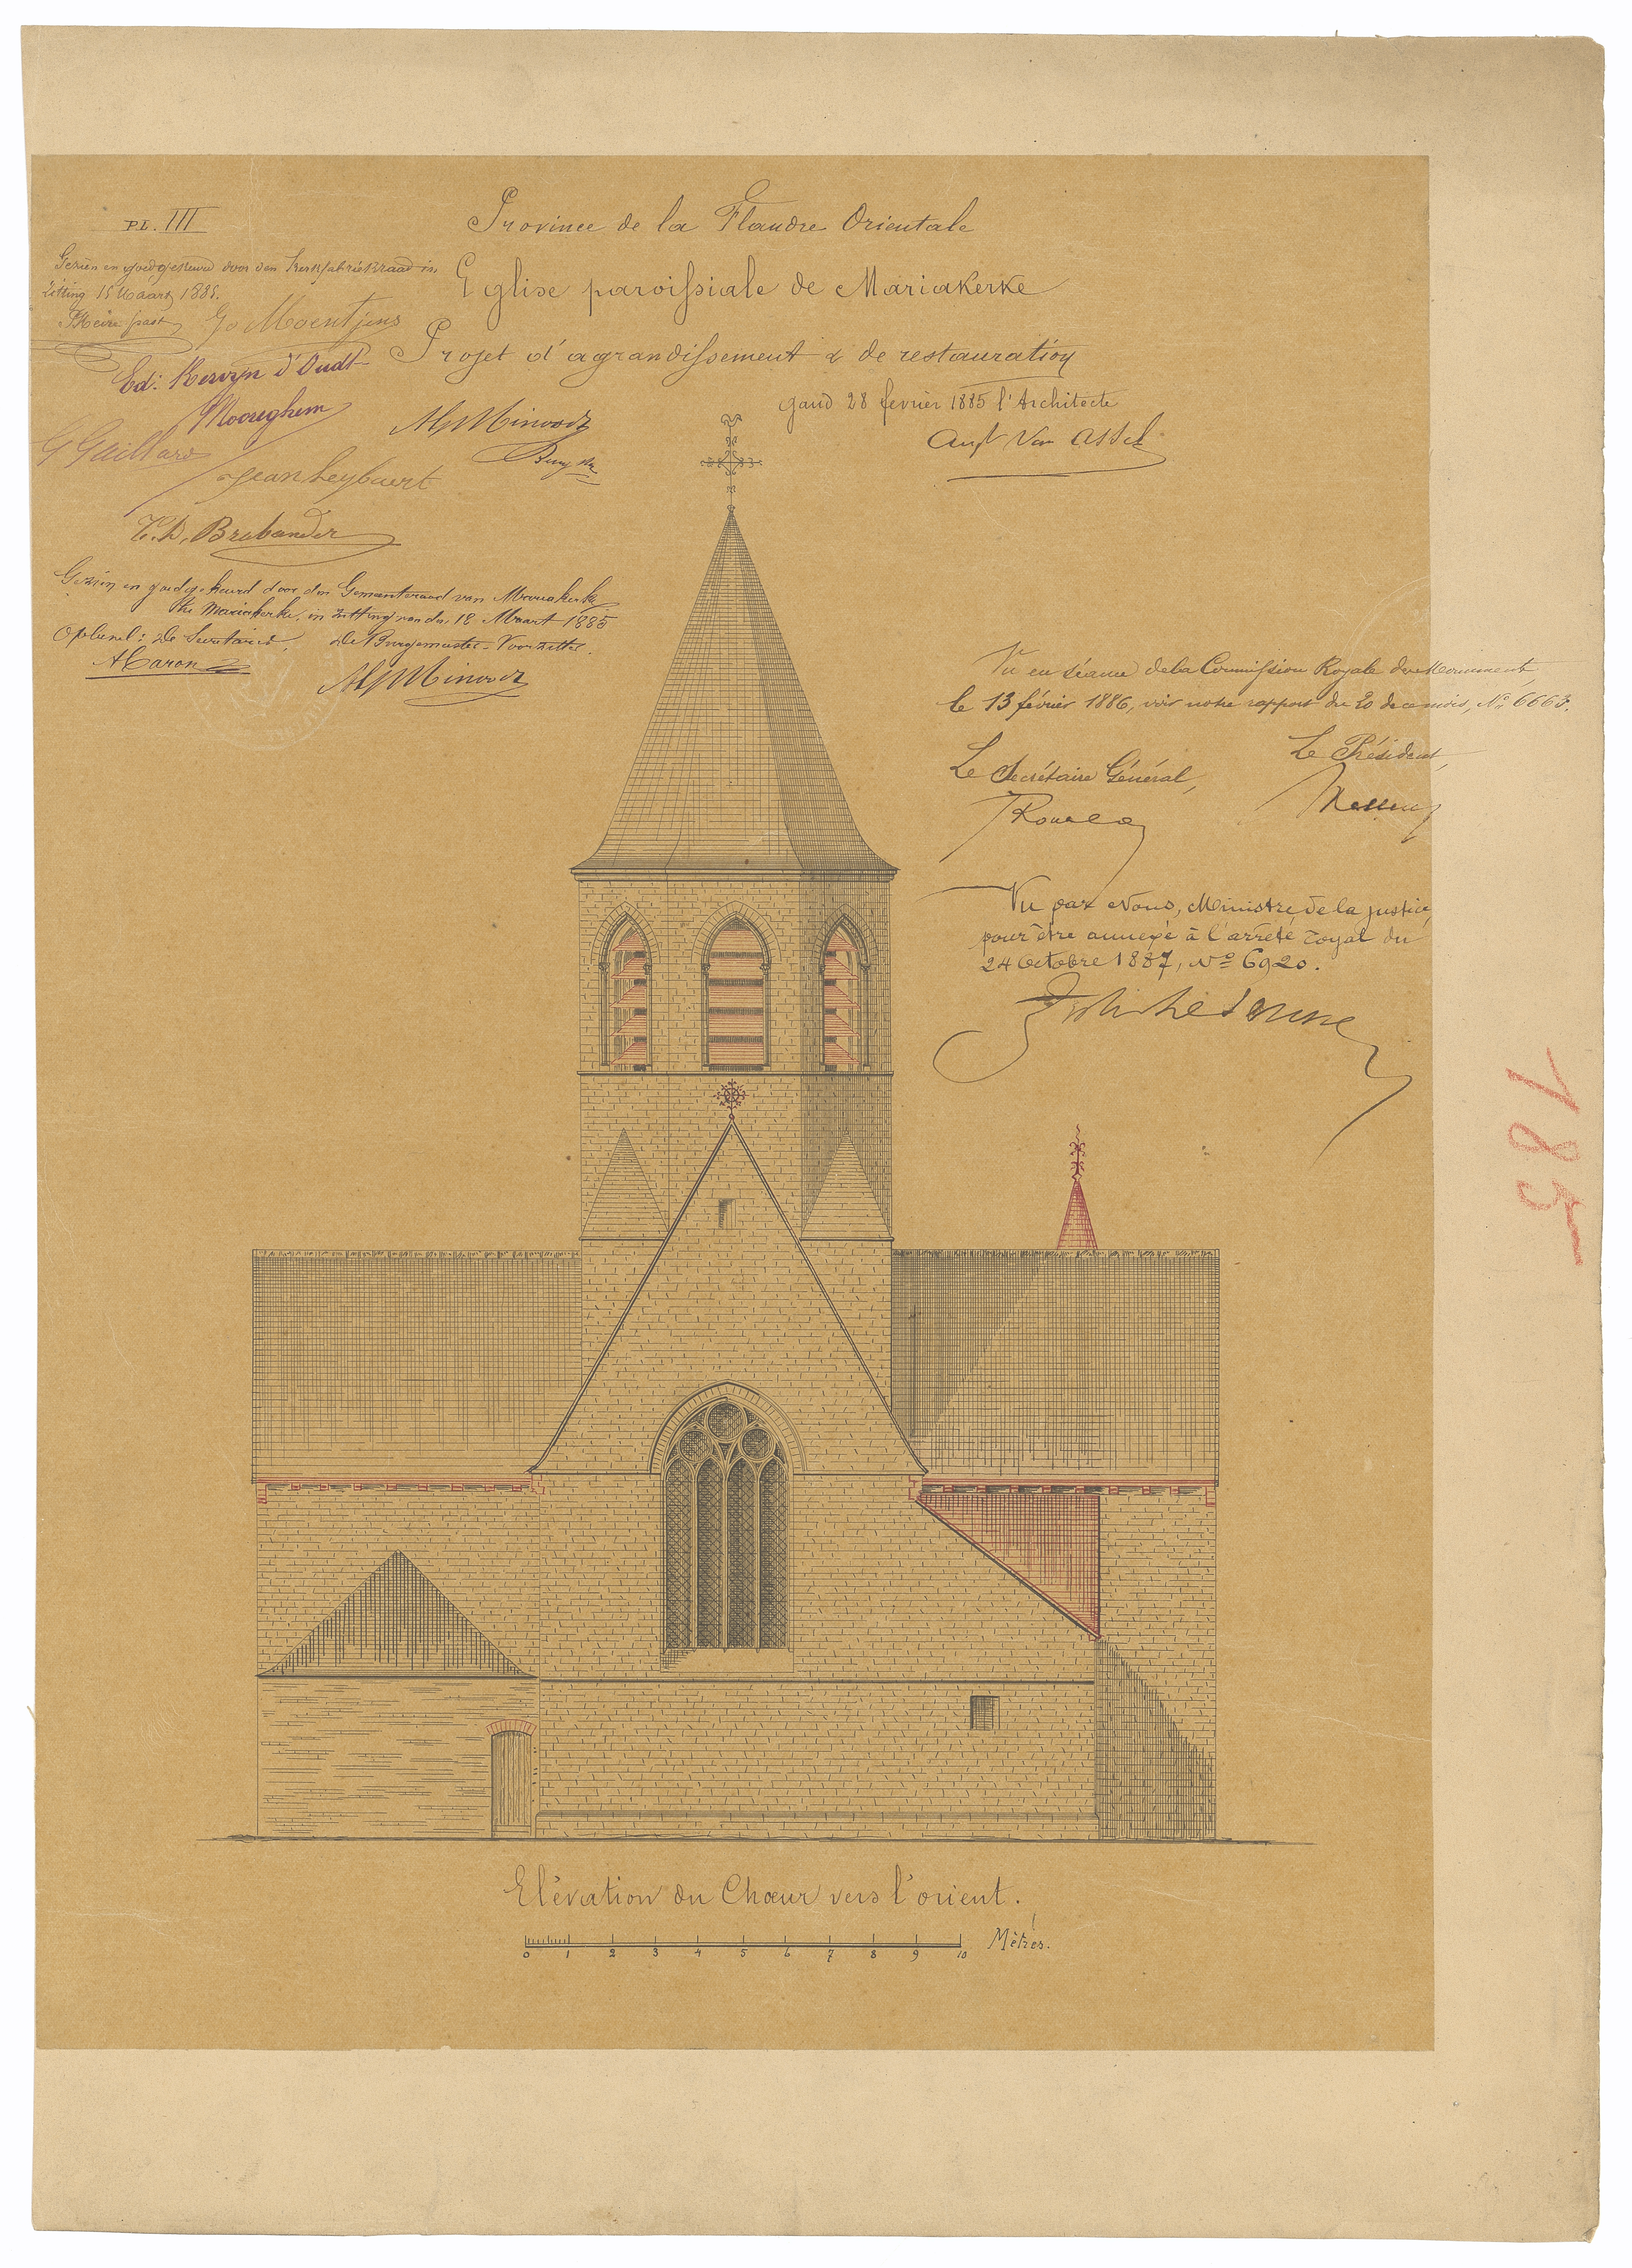 PL. III
Province de la Flandre Orientale
Eglise paroissiale de Mariakerke
Projet d'agrandissement & de restauration
Gand 28 fevrier 1885 l'Architecte
Aug Van Assche
Gezien en goedgekeurd door den Kerkfabriekraad in
zitting 15 Maart 1885.
Go Moentjens
Ed: Kervyn d'Oudt
Mooreghem
G Gaillard
Jean Leybaert
AJ Minvorts
E.D. Brabander
Gezien en goedgekeurd door den Gemeenteraad van Mariakerke
te Mariakerke, in zitting van den 18 Maart 1885
Op bevel: De Secretaris, De Burgemeester-Voorzitter.
Vu en séance de la Commission Royale des Monuments,
le 13 février 1886, voir notre rapport du 20 de ce mois, No 6663.
Le Secrétaire Général,
Le Président,
Rousseau
Vu par Nous, Ministre de la justice,
pour être annexé à l'arrêté royal du
24 Octobre 1887, No 6920.
185
Elévation du Chœur vers l'orient.
0 1 2 3 4 5 6 7 8 9 10 Mètres.